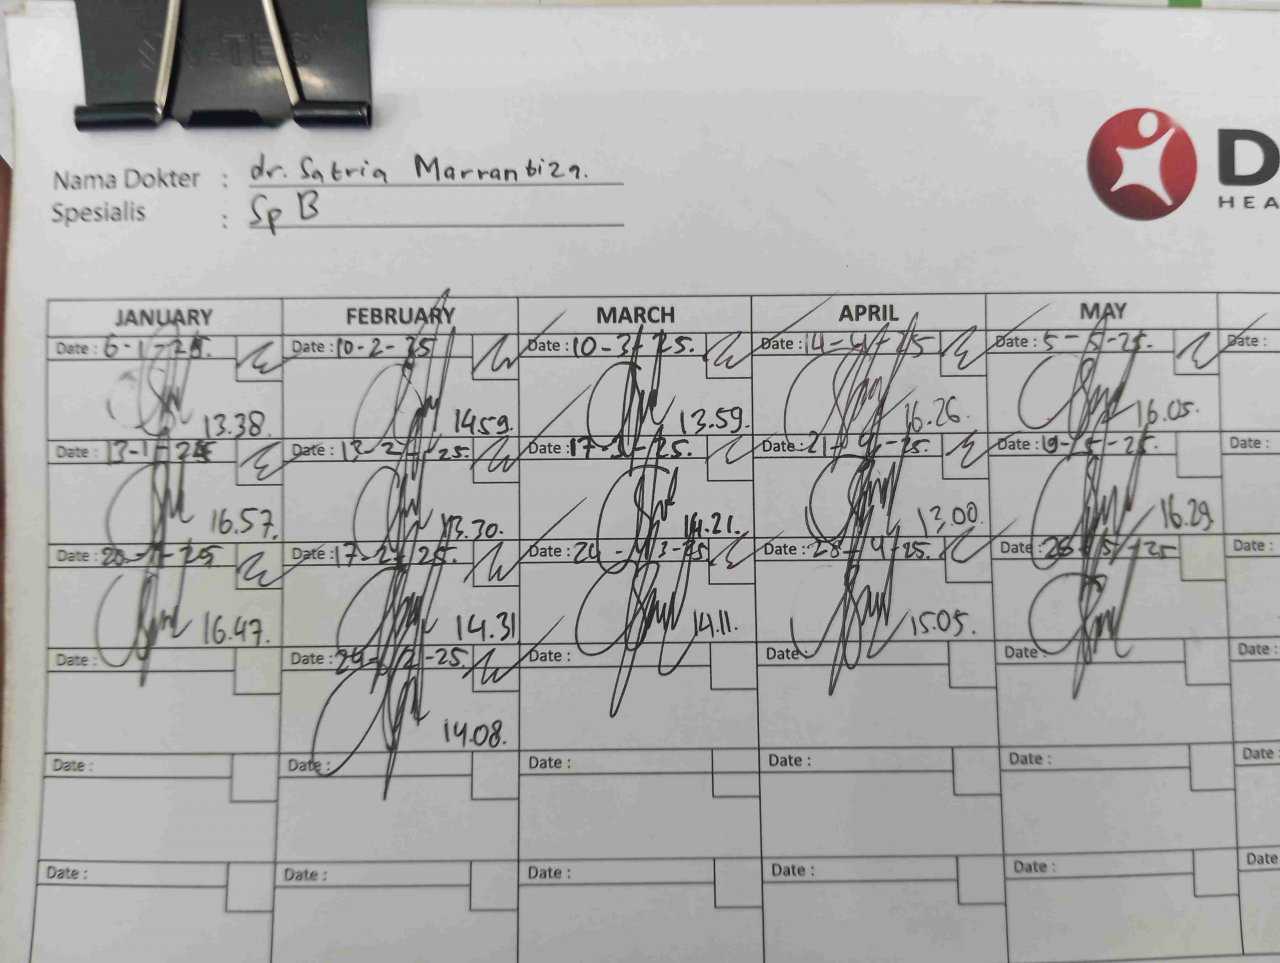 Nama Dokter : dr. Satria Marrantiza.
Spesialis : Sp B
D
HEA
JANUARY FEBRUARY MARCH APRIL MAY
Date : 6-1-25. Date : 10-2-25 Date : 10-3-25. Date : 14-4-25 Date : 5-5-25. Date :
13.38. 14.59. 13.59. 16.26. 16.05.
Date : 13-1-25 Date : 13-2-25. Date : 17-3-25. Date : 21-4-25. Date : 19-5-25. Date :
16.57. 13.30. 14.21. 13.00. 16.29.
Date : 20-1-25 Date : 17-2-25. Date : 24-3-25 Date : 28-4-25. Date : 26-5-25 Date :
16.47. 14.31 14.11. 15.05.
Date : Date : 24-2-25. Date : Date : Date : Date :
14.08.
Date : Date : Date : Date : Date : Date :
Date : Date : Date : Date : Date : Date